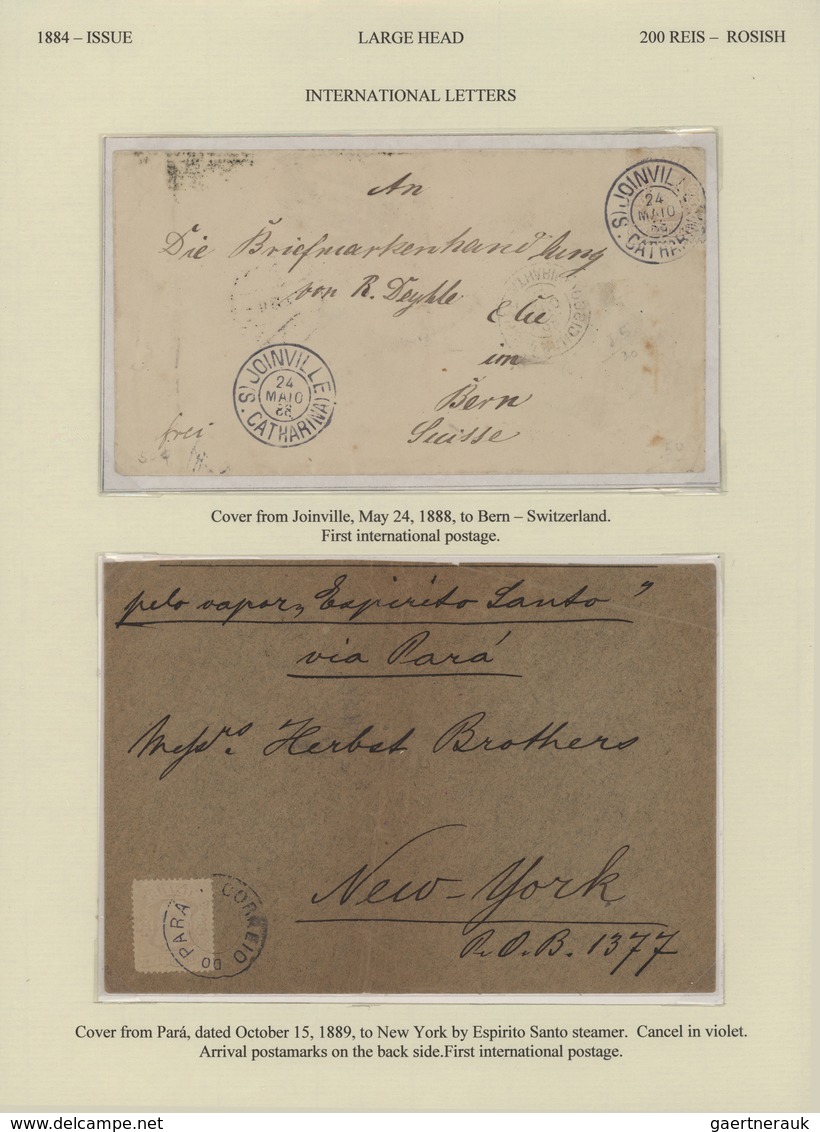 1884 – ISSUE LARGE HEAD 200 REIS – ROSISH
INTERNATIONAL LETTERS
An
Die Briefmarkenhandlung
von R. Deyhle
& Cie
im
Bern
Suisse
frei
JOINVILLE
24
MAIO
88
S. CATHARINA
JOINVILLE
24
MAIO
88
(S. CATHARINA)
Cover from Joinville, May 24, 1888, to Bern – Switzerland.
First international postage.
pelo vapor „Espirito Santo”
via Pará
Messrs. Herbst Brothers
New-York
P.O.B. 1377
CORREIO DO PARÁ
Cover from Pará, dated October 15, 1889, to New York by Espirito Santo steamer. Cancel in violet.
Arrival postamarks on the back side.First international postage.
www.delcampe.net
gaertnerauk